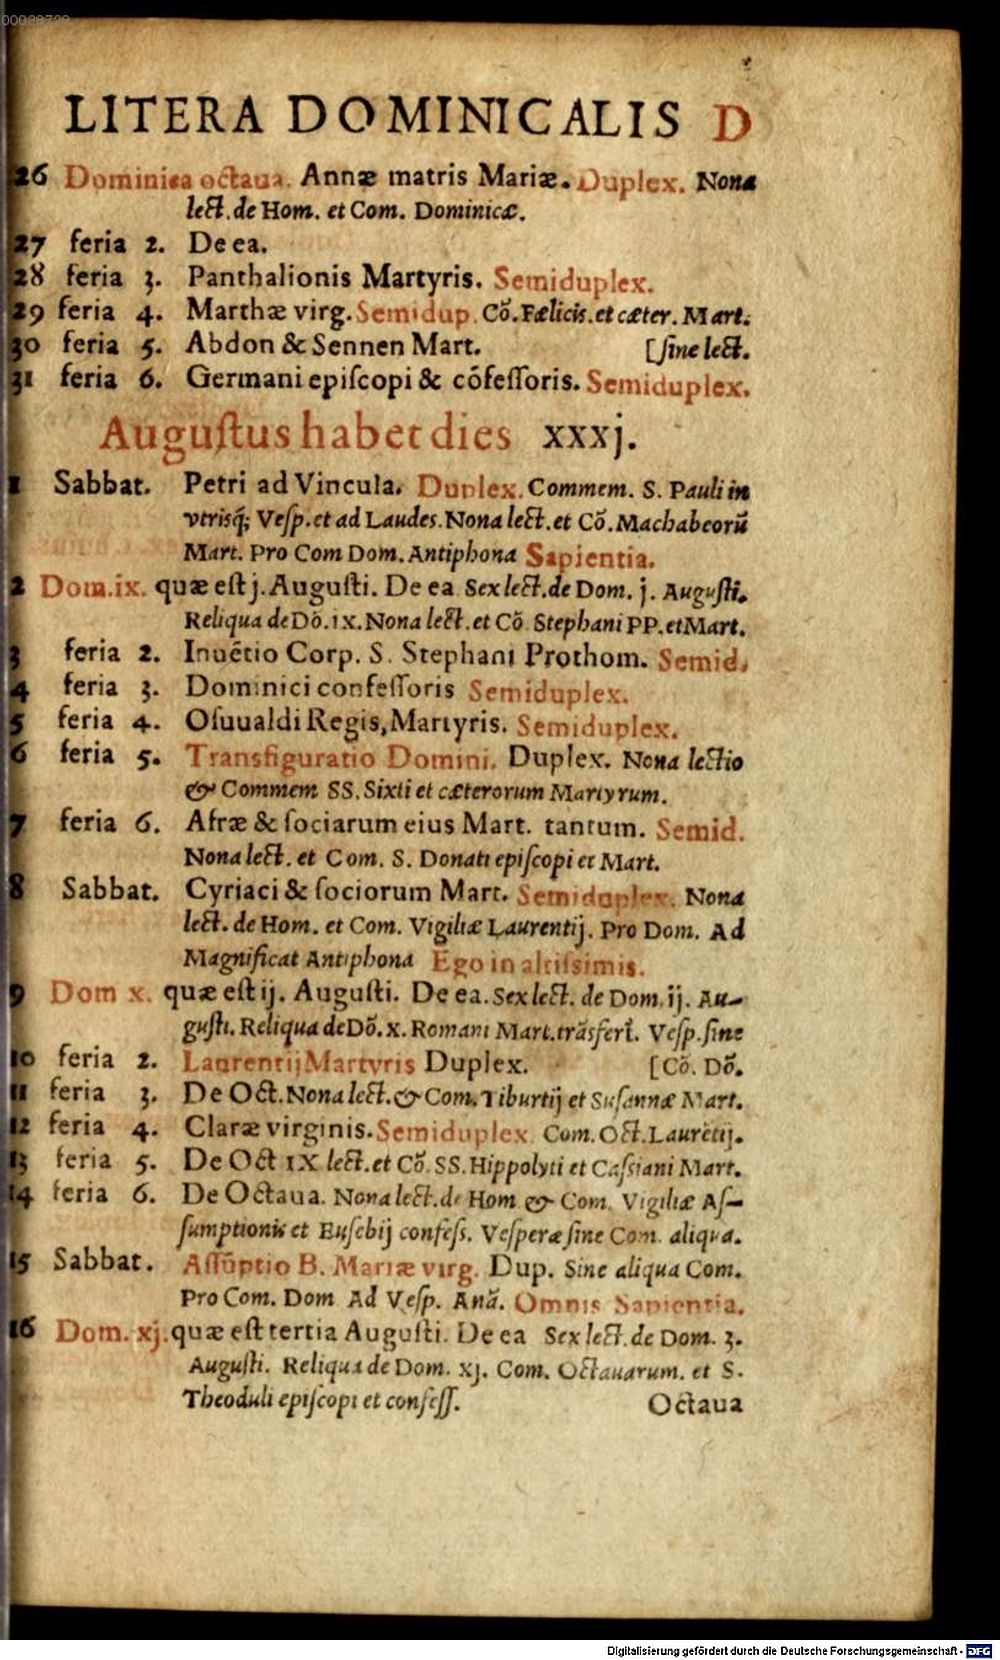 00028728
LITERA DOMINICALIS D
26 Dominica octaua. Annæ matris Mariæ. Duplex. Nona
lect. de Hom. et Com. Dominicæ.
27 feria 2. De ea.
28 feria 3. Panthalionis Martyris. Semiduplex.
29 feria 4. Marthæ virg. Semidup. Cō. Fælicis. et cæter. Mart.
30 feria 5. Abdon & Sennen Mart. [ſine lect.
31 feria 6. Germani epiſcopi & cōfeſſoris. Semiduplex.
Auguſtus habet dies xxxj.
1 Sabbat. Petri ad Vincula. Duplex. Commem. S. Pauli in
vtrisq; Veſp. et ad Laudes. Nona lect. et Cō. Machabeorū
Mart. Pro Com Dom. Antiphona Sapientia.
2 Dom. ix. quæ eſt j. Auguſti. De ea Sex lect. de Dom. j. Auguſti.
Reliqua de Dō. ix. Nona lect. et Cō. Stephani PP. et Mart.
3 feria 2. Inuētio Corp. S. Stephani Prothom. Semid.
4 feria 3. Dominici confeſſoris Semiduplex.
5 feria 4. Oſuualdi Regis, Martyris. Semiduplex.
6 feria 5. Transfiguratio Domini. Duplex. Nona lectio
& Commem SS. Sixti et cæterorum Martyrum.
7 feria 6. Afræ & ſociarum eius Mart. tantum. Semid.
Nona lect. et Com. S. Donati epiſcopi et Mart.
8 Sabbat. Cyriaci & ſociorum Mart. Semiduplex. Nona
lect. de Hom. et Com. Vigiliæ Laurentij. Pro Dom. Ad
Magnificat Antiphona Ego in altiſsimis.
9 Dom x. quæ eſt ij. Auguſti. De ea. Sex lect. de Dom. ij. Au-
guſti. Reliqua de Dō. x. Romani Mart. trāsfert. Veſp. ſine
10 feria 2. Laurentij Martyris Duplex. [Cō. Dō.
11 feria 3. De Oct. Nona lect. & Com. Tiburtij et Suſannæ Mart.
12 feria 4. Claræ virginis. Semiduplex. Com. Oct. Laurētij.
13 feria 5. De Oct IX lect. et Cō. SS. Hippolyti et Caſsiani Mart.
14 feria 6. De Octaua. Nona lect. de Hom & Com. Vigiliæ Aſ-
ſumptionis et Euſebij confeſs. Veſperæ ſine Com. aliqua.
15 Sabbat. Aſſūptio B. Mariæ virg. Dup. Sine aliqua Com.
Pro Com. Dom Ad Veſp. Anā. Omnis Sapientia.
16 Dom. xj. quæ eſt tertia Auguſti. De ea Sex lect. de Dom. 3.
Auguſti. Reliqua de Dom. xj. Com. Octauarum. et S.
Theoduli epiſcopi et confeſſ. Octaua
Digitalisierung gefördert durch die Deutsche Forschungsgemeinschaft - DFG